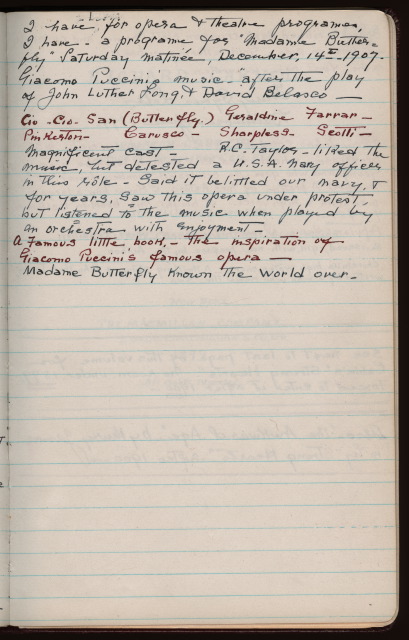 I have, for opera & theatre programes,
I have - a programe for "Madame Butter=
fly" Saturday matinee, December, 14th - 1907.
Giacomo Puccini's music - after the play
of John Luther Long, & David Belasco —
Cio-Cio-San (Butterfly.) Geraldine Farrar -
Pinkerton - Carusco - Sharpless - Scotti -
Magnificent cast - R.C. Taylor - liked the
music, but detested a U.S.A. Navy officer
in this rôle - Said it belittled our navy, &
for years, saw this opera under protest
but listened to the music when played by
an orchestra with enjoyment -
A Famous little book, - the inspiration of
Giacomo Puccini's famous opera —
Madame Butterfly known the world over -